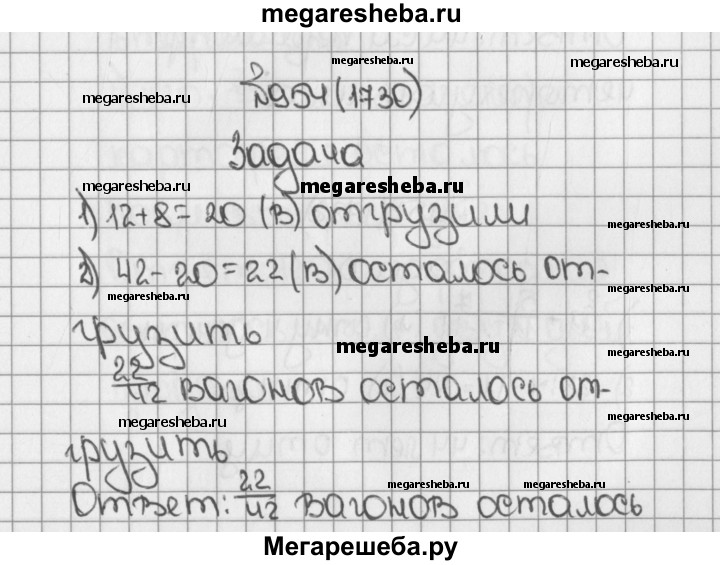 megaresheba.ru
megaresheba.ru megaresheba.ru
№954 (1730)
megaresheba.ru
Задача megaresheba.ru
megaresheba.ru megaresheba.ru
1) 12+8=20 (в) отгрузили
megaresheba.ru
2) 42-20=22 (в) осталось от-
megaresheba.ru megaresheba.ru
грузить megaresheba.ru
megaresheba.ru
22/42 вагонов осталось от-
megaresheba.ru megaresheba.ru
грузить
megaresheba.ru megaresheba.ru
Ответ: 22/42 вагонов осталось
Мегарешеба.ру